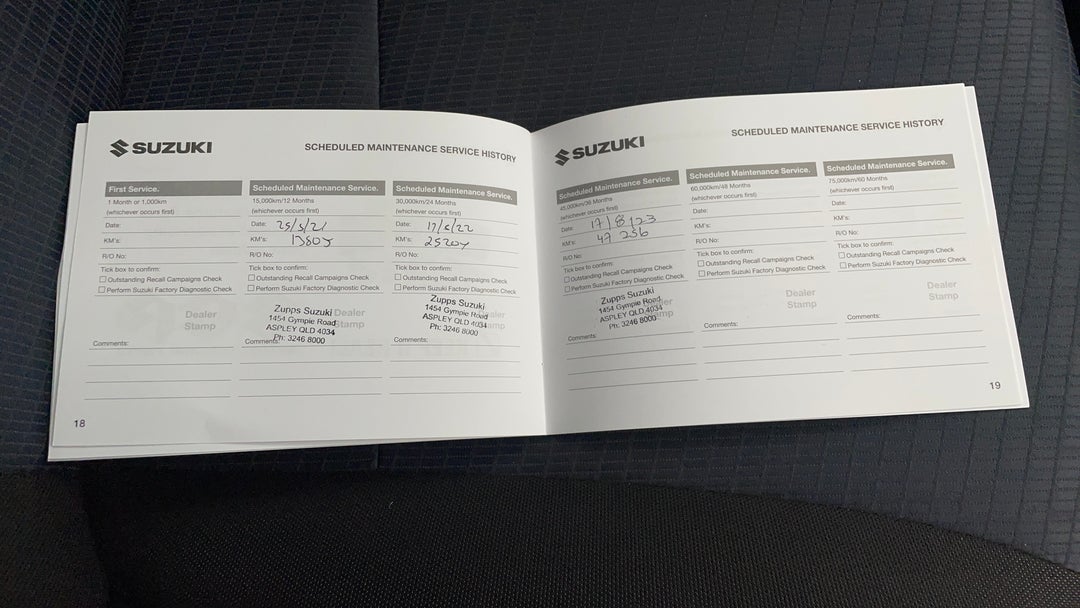 SUZUKI
SCHEDULED MAINTENANCE SERVICE HISTORY
First Service.
1 Month or 1,000km
(whichever occurs first)
Date:
KM's:
R/O No:
Tick box to confirm:
Outstanding Recall Campaigns Check
Perform Suzuki Factory Diagnostic Check
Dealer
Stamp
Comments:
Scheduled Maintenance Service.
15,000km/12 Months
(whichever occurs first)
Date: 25/5/21
KM's:
R/O No:
Tick box to confirm:
Outstanding Recall Campaigns Check
Perform Suzuki Factory Diagnostic Check
Dealer
Stamp
Zupps Suzuki
1454 Gympie Road
ASPLEY QLD 4034
Ph: 3246 8000
Comments:
Scheduled Maintenance Service.
30,000km/24 Months
(whichever occurs first)
Date: 17/6/22
KM's:
R/O No:
Tick box to confirm:
Outstanding Recall Campaigns Check
Perform Suzuki Factory Diagnostic Check
Zupps Suzuki
1454 Gympie Road
ASPLEY QLD 4034
Ph: 3246 8000
Comments:
18
SUZUKI
SCHEDULED MAINTENANCE SERVICE HISTORY
Scheduled Maintenance Service.
45,000km/36 Months
(whichever occurs first)
Date: 17/8/23
KM's: 47 256
R/O No:
Tick box to confirm:
Outstanding Recall Campaigns Check
Perform Suzuki Factory Diagnostic Check
Zupps Suzuki
1454 Gympie Road
ASPLEY QLD 4034
Ph: 3246 8000
Comments:
Scheduled Maintenance Service.
60,000km/48 Months
(whichever occurs first)
Date:
KM's:
R/O No:
Tick box to confirm:
Outstanding Recall Campaigns Check
Perform Suzuki Factory Diagnostic Check
Dealer
Stamp
Comments:
Scheduled Maintenance Service.
75,000km/60 Months
(whichever occurs first)
Date:
KM's:
R/O No:
Tick box to confirm:
Outstanding Recall Campaigns Check
Perform Suzuki Factory Diagnostic Check
Dealer
Stamp
Comments:
19